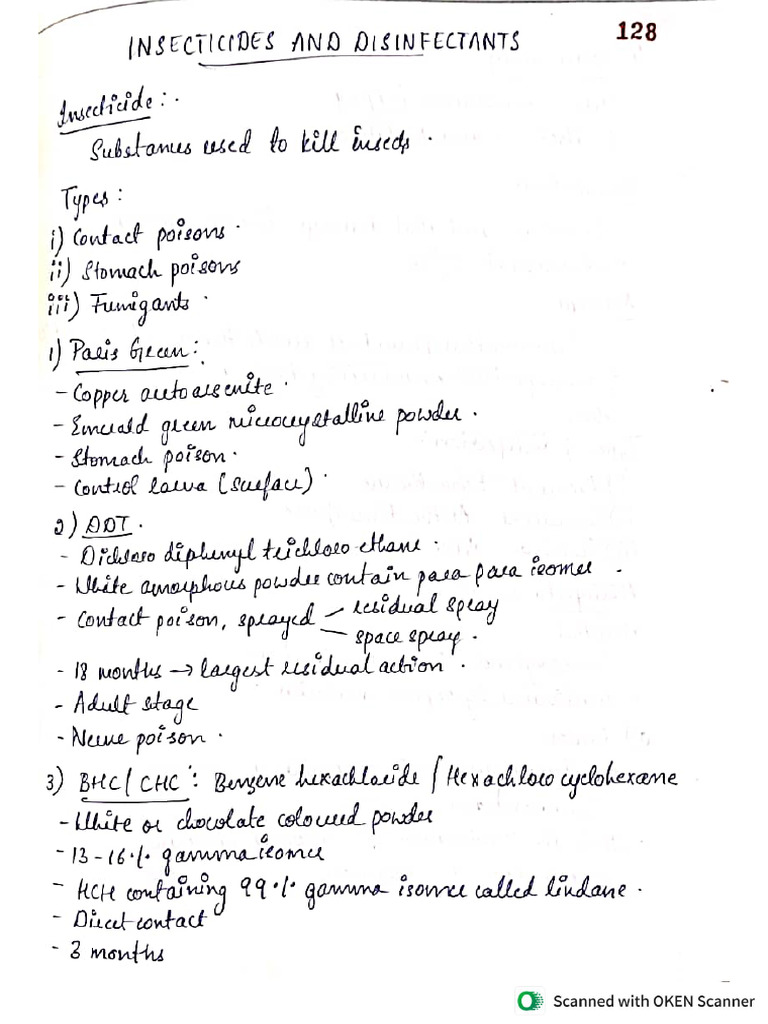 128
INSECTICIDES AND DISINFECTANTS
Insecticide:.
Substances used to kill insects.
Types:
i) Contact poisons.
ii) Stomach poisons
iii) Fumigants.
1) Paris Green:
- Copper acetoarsenite.
- Emerald green microcrystalline powder.
- Stomach poison.
- Control larva (surface).
2) DDT.
- Dichloro diphenyl trichloro ethane.
- White amorphous powder contain para para isomer.
- Contact poison, sprayed residual spray
space spray.
- 18 months → largest residual action.
- Adult stage
- Nerve poison.
3) BHC/CHC: Benzene hexachloride / Hexachloro cyclohexane
- White or chocolate coloured powder
- 13-16% gamma isomer
- HCH containing 99% gamma isomer called lindane.
- Direct contact
- 3 months
Scanned with OKEN Scanner